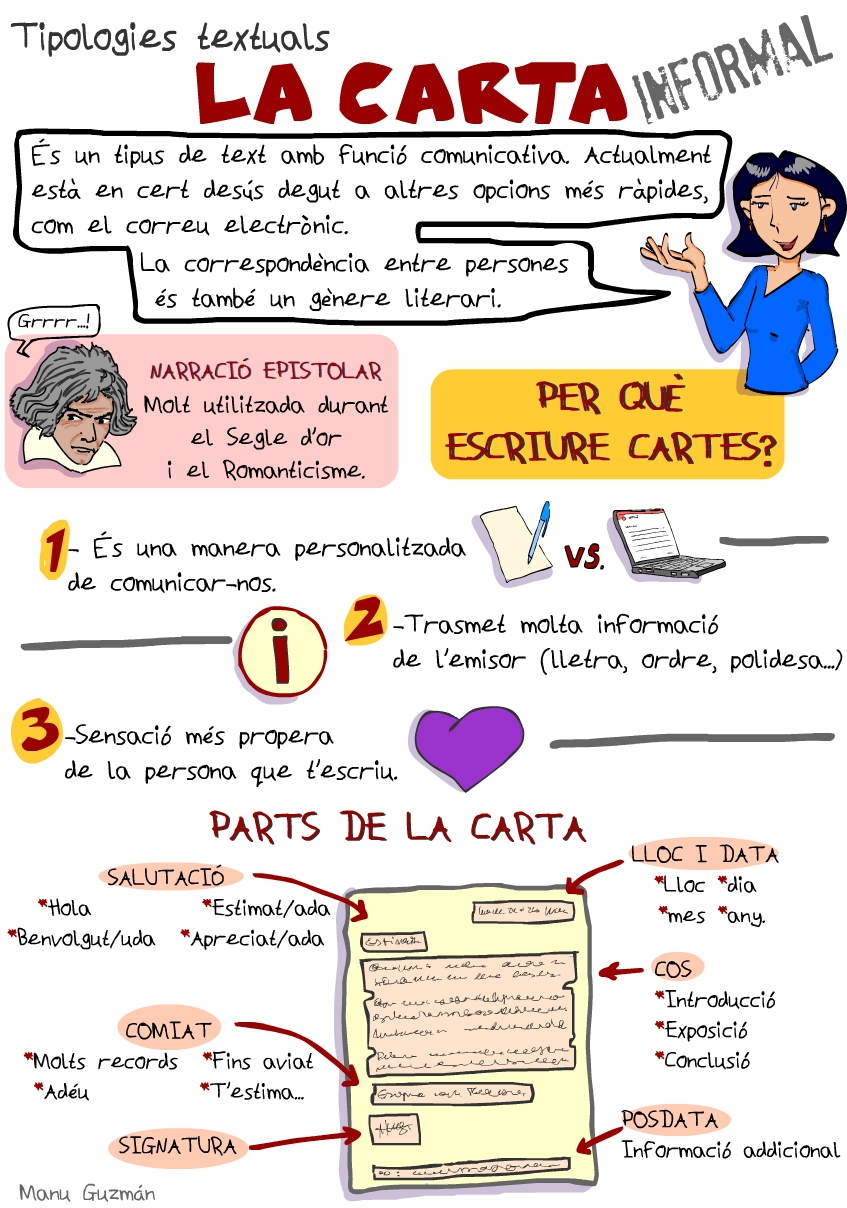 Tipologies textuals
LA CARTA INFORMAL
És un tipus de text amb funció comunicativa. Actualment
està en cert desús degut a altres opcions més ràpides,
com el correu electrònic.
La correspondència entre persones
és també un gènere literari.
Grrrr...!
NARRACIÓ EPISTOLAR
Molt utilitzada durant
el Segle d'or
i el Romanticisme.
PER QUÈ
ESCRIURE CARTES?
1- És una manera personalitzada
de comunicar-nos.
VS.
i
2-Trasmet molta informació
de l'emisor (lletra, ordre, polidesa...)
3-Sensació més propera
de la persona que t'escriu.
PARTS DE LA CARTA
SALUTACIÓ
*Hola *Estimat/ada
*Benvolgut/uda *Apreciat/ada
LLOC I DATA
*Lloc *dia
*mes *any.
COS
*Introducció
*Exposició
*Conclusió
COMIAT
*Molts records *Fins aviat
*Adéu *T'estima...
SIGNATURA
POSDATA
Informació addicional
Manu Guzmán